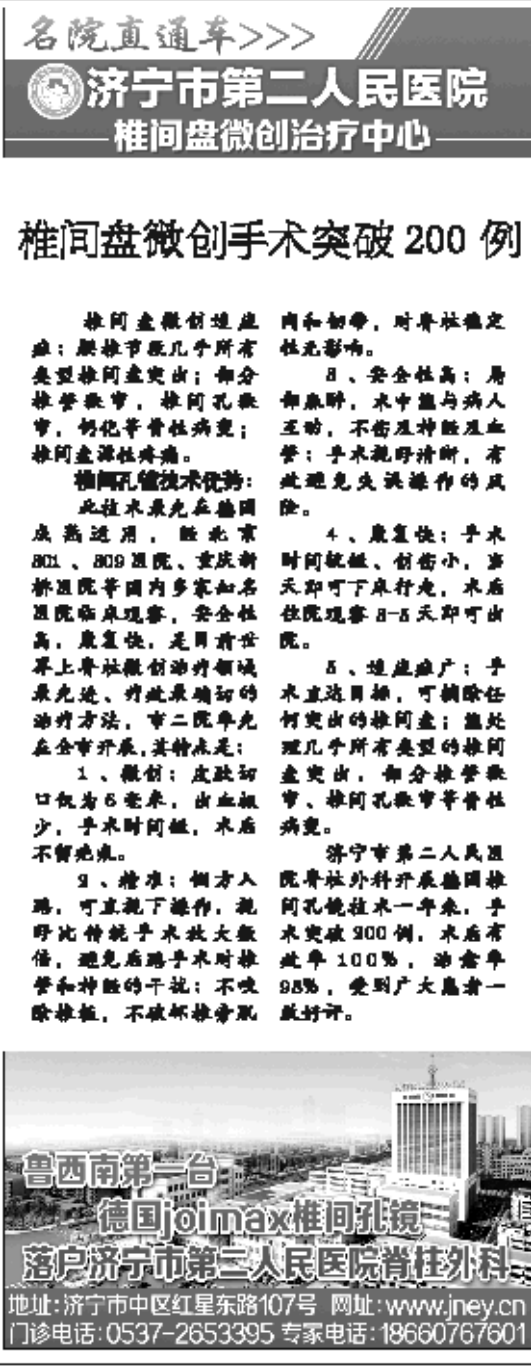 名院直通车>>>
济宁市第二人民医院
椎间盘微创治疗中心
椎间盘微创手术突破 200 例
椎间盘微创适应
症：腰椎节段几乎所有
类型椎间盘突出；部分
椎管狭窄，椎间孔狭
窄，钙化等骨性病变；
椎间盘源性疼痛。
椎间孔镜技术优势：
此技术最先在德国
成熟运用，经北京
301、309医院、重庆新
桥医院等国内多家知名
医院临床观察，安全性
高，康复快，是目前世
界上脊柱微创治疗领域
最先进、疗效最确切的
治疗方法，市二院率先
在全市开展，其特点是：
1、微创：皮肤切
口仅为6毫米，出血极
少，手术时间短，术后
不留疤痕。
2、精准：侧方入
路，可直视下操作，视
野比传统手术放大数
倍，避免后路手术时椎
管和神经的干扰；不咬
除椎板，不破坏椎旁肌
肉和韧带，对脊柱稳定
性无影响。
3、安全性高：局
部麻醉，术中能与病人
互动，不伤及神经及血
管；手术视野清晰，有
效避免失误操作的风
险。
4、康复快：手术
时间较短、创伤小，当
天即可下床行走，术后
住院观察3-5天即可出
院。
5、适应症广：手
术直达目标，可摘除任
何突出的椎间盘；能处
理几乎所有类型的椎间
盘突出，部分椎管狭
窄、椎间孔狭窄等骨性
病变。
济宁市第二人民医
院脊柱外科开展德国椎
间孔镜技术一年来，手
术突破200例，术后有
效率100%，治愈率
98%，受到广大患者一
致好评。
鲁西南第一台
德国joimax椎间孔镜
落户济宁市第二人民医院脊柱外科
地址：济宁市中区红星东路107号 网址：www.jney.cn
门诊电话：0537-2653395 专家电话：18660767601